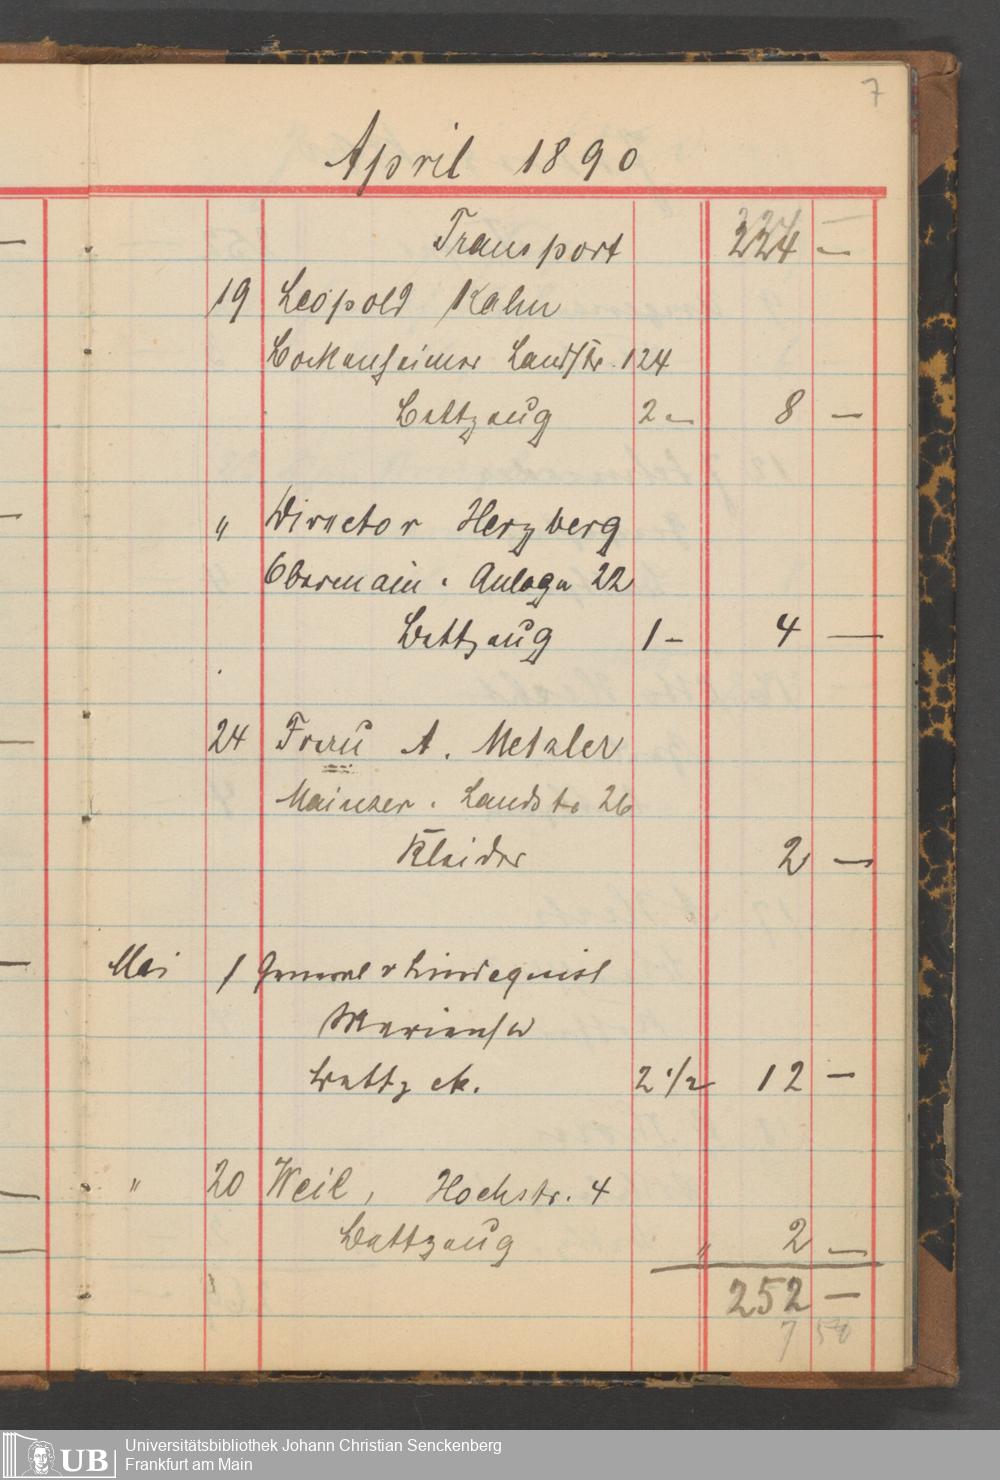 7
April 1890
Transport 224 —
19 Leopold Kahn
Bockenheimer Landstr. 124
Bettzeug 2 — 8 —
" Director Herzberg
Obermain. Anlage 22
Bettzeug 1 — 4 —
24 Frau A. Metzler
Mainzer. Landstr 26
Kleider 2 —
Mai 1 General v Lindequist
Bettz etc. 2 1/2 12 —
" 20 Weil, Hochstr. 4
Bettzeug " 2 —
252 —
7 50
UB Universitätsbibliothek Johann Christian Senckenberg
Frankfurt am Main